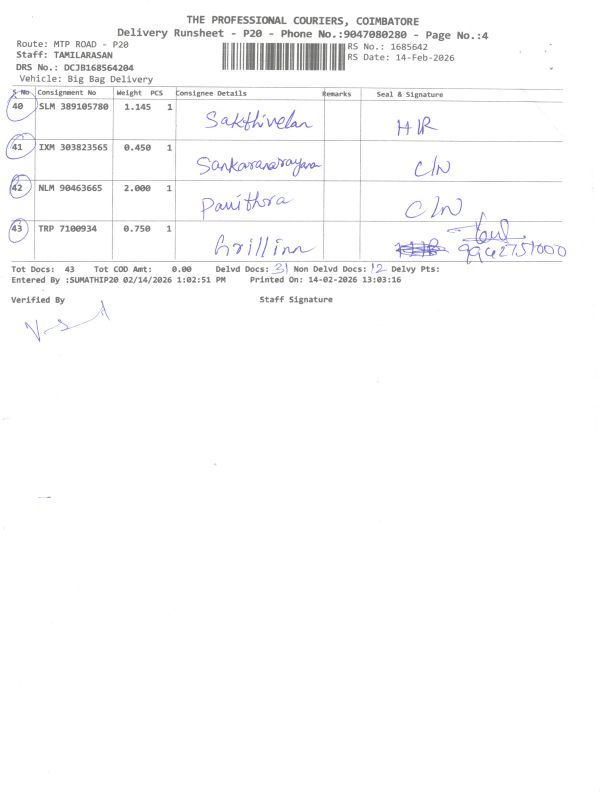 THE PROFESSIONAL COURIERS, COIMBATORE
Delivery Runsheet - P20 - Phone No.:9047080280 - Page No.:4
Route: MTP ROAD - P20 RS No.: 1685642
Staff: TAMILARASAN RS Date: 14-Feb-2026
DRS No.: DCJB168564204
Vehicle: Big Bag Delivery
S No Consignment No Weight PCS Consignee Details Remarks Seal & Signature
40 SLM 389105780 1.145 1 Sakthivelan H/R
41 IXM 303823565 0.450 1 Sankaranarayana C/N
42 NLM 90463665 2.000 1 Pavithra C/N
43 TRP 7100934 0.750 1 Grill inn
Tot Docs: 43 Tot COD Amt: 0.00 Delvd Docs: 31 Non Delvd Docs: 12 Delvy Pts:
Entered By :SUMATHIP20 02/14/2026 1:02:51 PM Printed On: 14-02-2026 13:03:16
Verified By Staff Signature